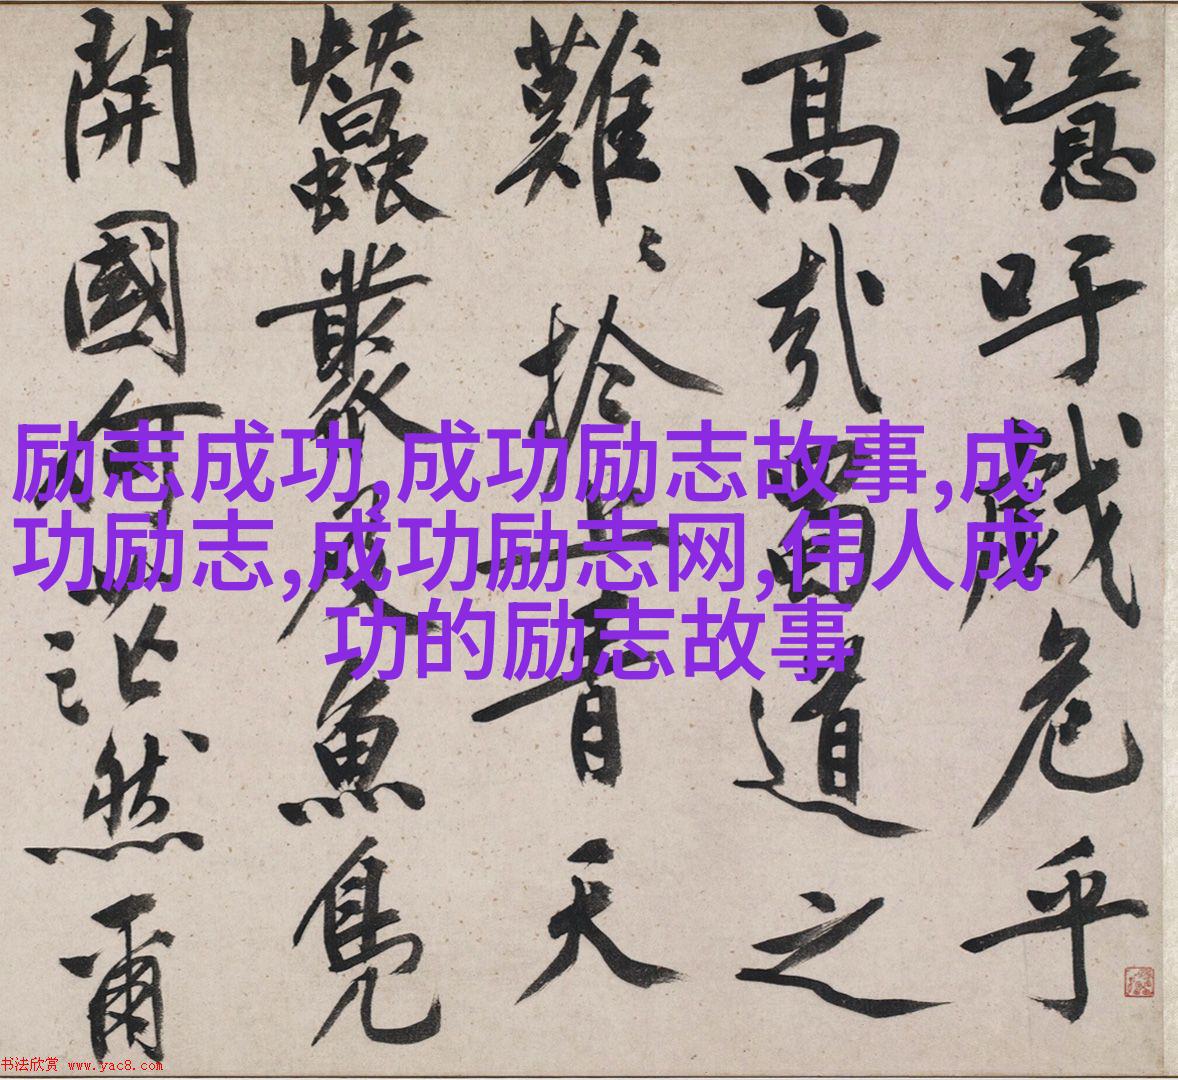 噫吁戲危乎
高哉蜀道之
難〻扵上青天
蠶叢及魚鳧
開國何茫然爾
励志成功,成功励志故事,成
功励志,成功励志网,伟人成
功的励志故事
书法欣赏 www.yac8.com